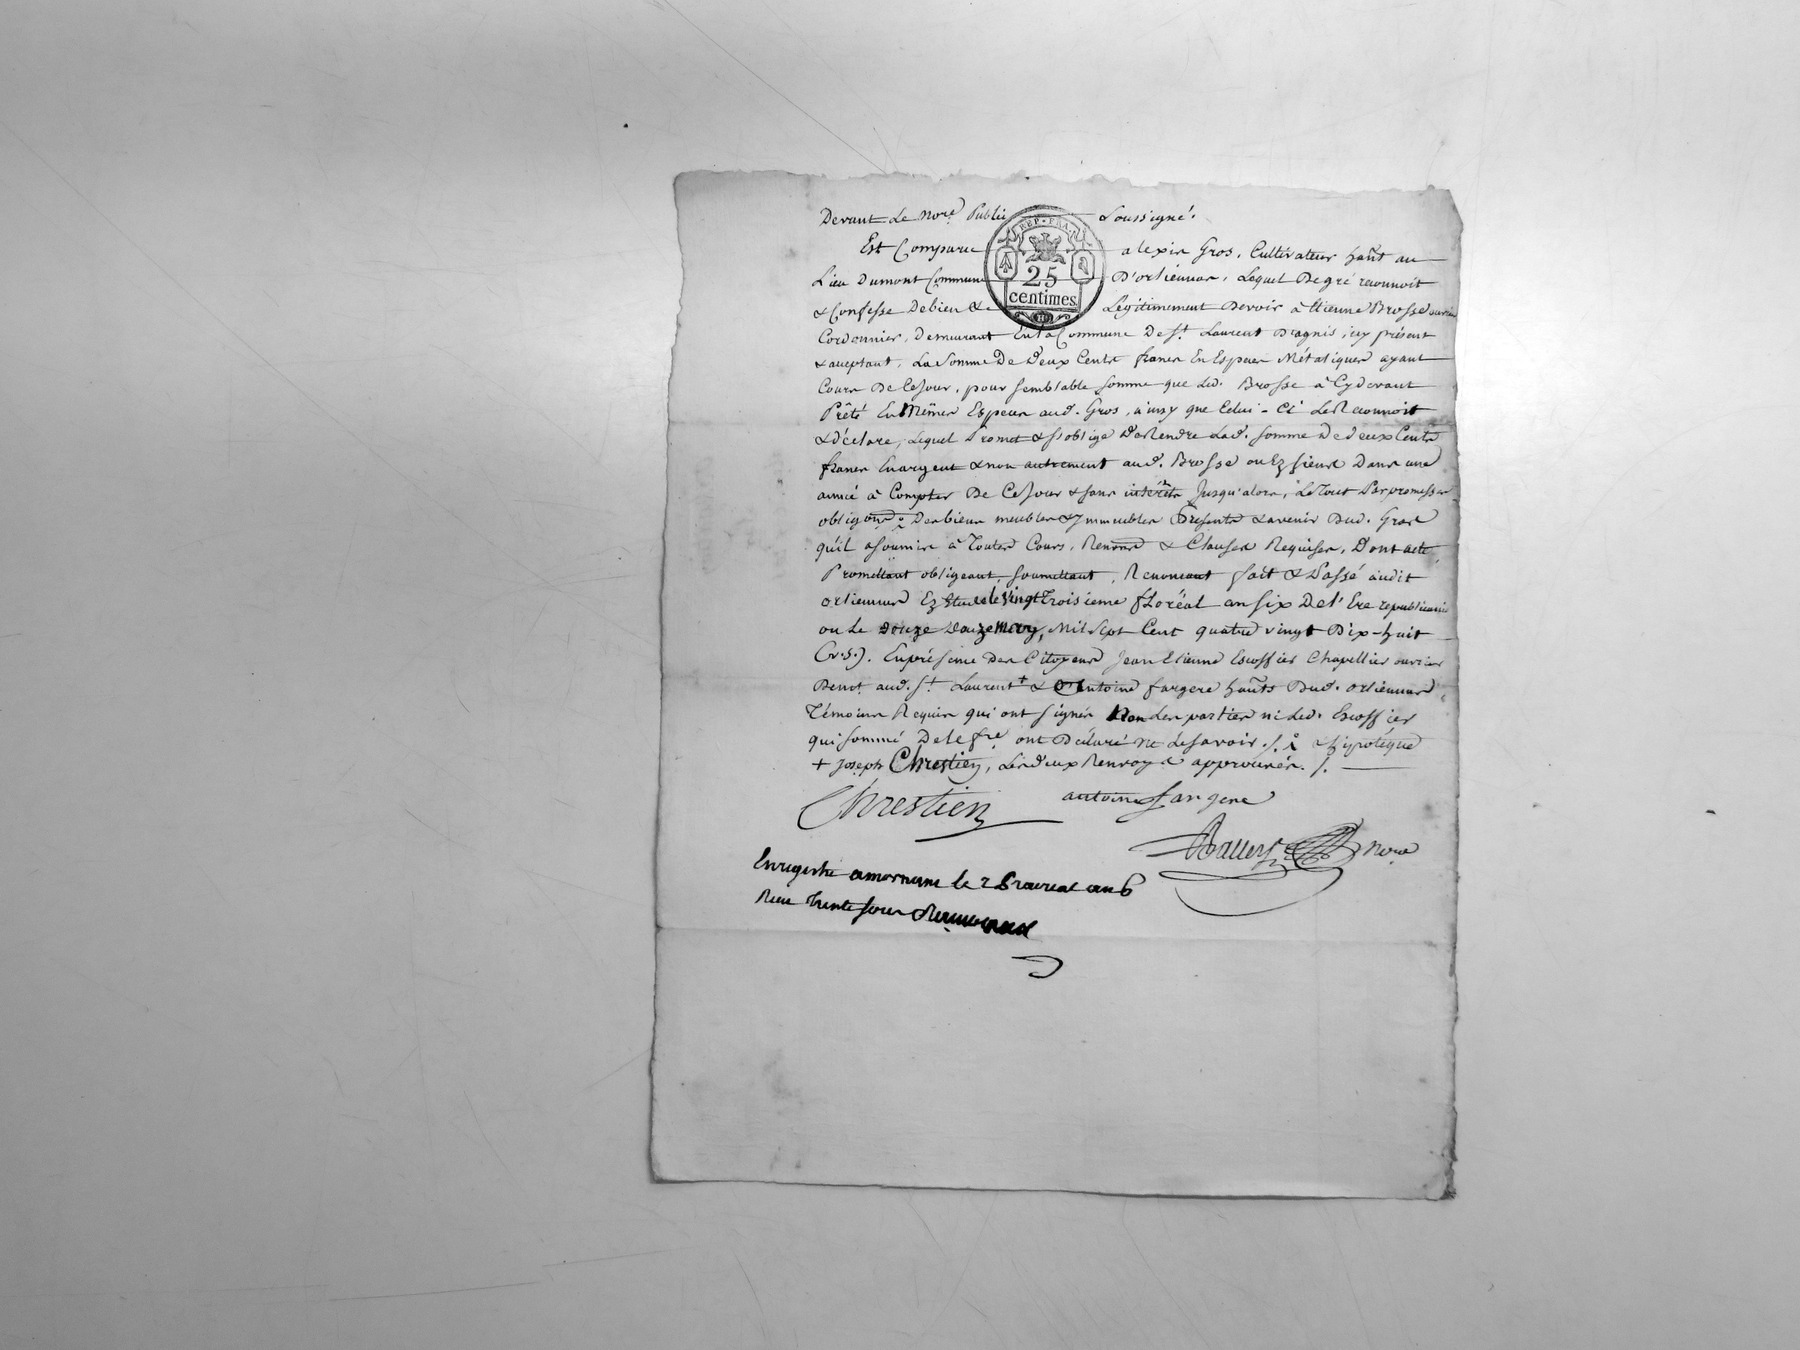 Devant Le Nore. Public soussigné.
REP. FRA.
25
centimes
Est Comparu alexis Gros, Cultivateur hant au
Lieu Dumont Commune D'orliennas, Lequel De gré reconnoit
& Confesse Debien & Légitimement Devoir à Etienne Brosse ouvrier
Cordonnier, Demeurant En la Commune De St. Laurent Dagnis, icy présent
& acceptant, La Somme De Deux Cents francs En Espèces Métaliques ayant
Cours De Ce Jour, pour semblable somme que Led. Brosse à Cy devant
Prêté En Mêmes Espèces aud. Gros, ainsy que Celui-Ci Le Reconnoit
& déclare, Lequel Promet & s'oblige De Rendre Lad. somme De deux Cents
francs En argent & non autrement aud. Brosse ou Ez siens Dans une
année à Compter De Ce Jour & sans intérêts Jusqu'alors, Le Tout Par promesses
obligons Des biens meubles & Immeubles Présents & avenir Dud. Gros
qu'il a soumis à Toutes Cours, Renons & Clauses Requises, Dont acte
Promettant obligeant, soumettant, Renonçant fait & Passé audit
orliennas Ez Etude le vingt Trois ieme floréal an six De l'Ere republicaine
ou Le Douze may, Mil Sept Cent quatre vingt Dix-huit
(v.s.). En présence Des Citoyens Jean Etienne Escoffier Chapellier ouvrier
Demt. aud. St. Laurent + & Antoine fargere hants Dud. orliennas
Témoins Requis qui ont signés Non Les parties ni Led. Escoffier
qui sommé De le fre. ont Déclaré Ne Le savoir ./. & hypotéque
+ Joseph Chrestien, Les deux Renvoys approuvés. ./.
Chrestien antoine fargere
Nore
Enregistré a mornant le 2 Prairial an 6
Reçu Trente sous